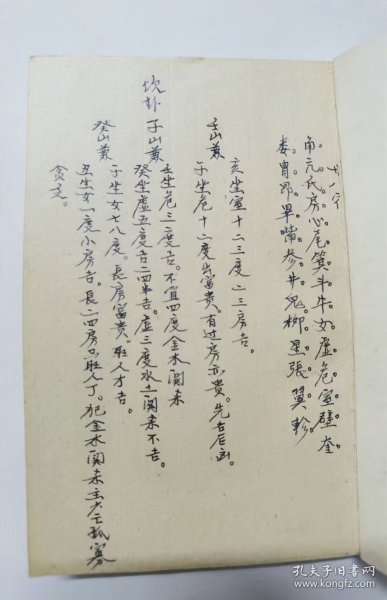 廿八宿
角亢氐房心尾箕斗牛女虚危室壁奎。
娄胃昴毕嘴参井鬼柳星張翼軫。
亥坐室十一二三度二三房吉。
壬山兼
子坐危十一度出富贵。有过房亦贵。先吉后凶。
壬坐危三度吉。不宜四度金水関未
坎卦 子山兼
癸坐虚五度吉二四半吉。虚三度水土関未不吉。
子坐女七八度。長房富贵。旺人才吉。
癸山兼
丑坐女一度小房吉。長二四房旺人丁。犯金水関未主大亡孤寡
贪乏。
孔夫子旧书网